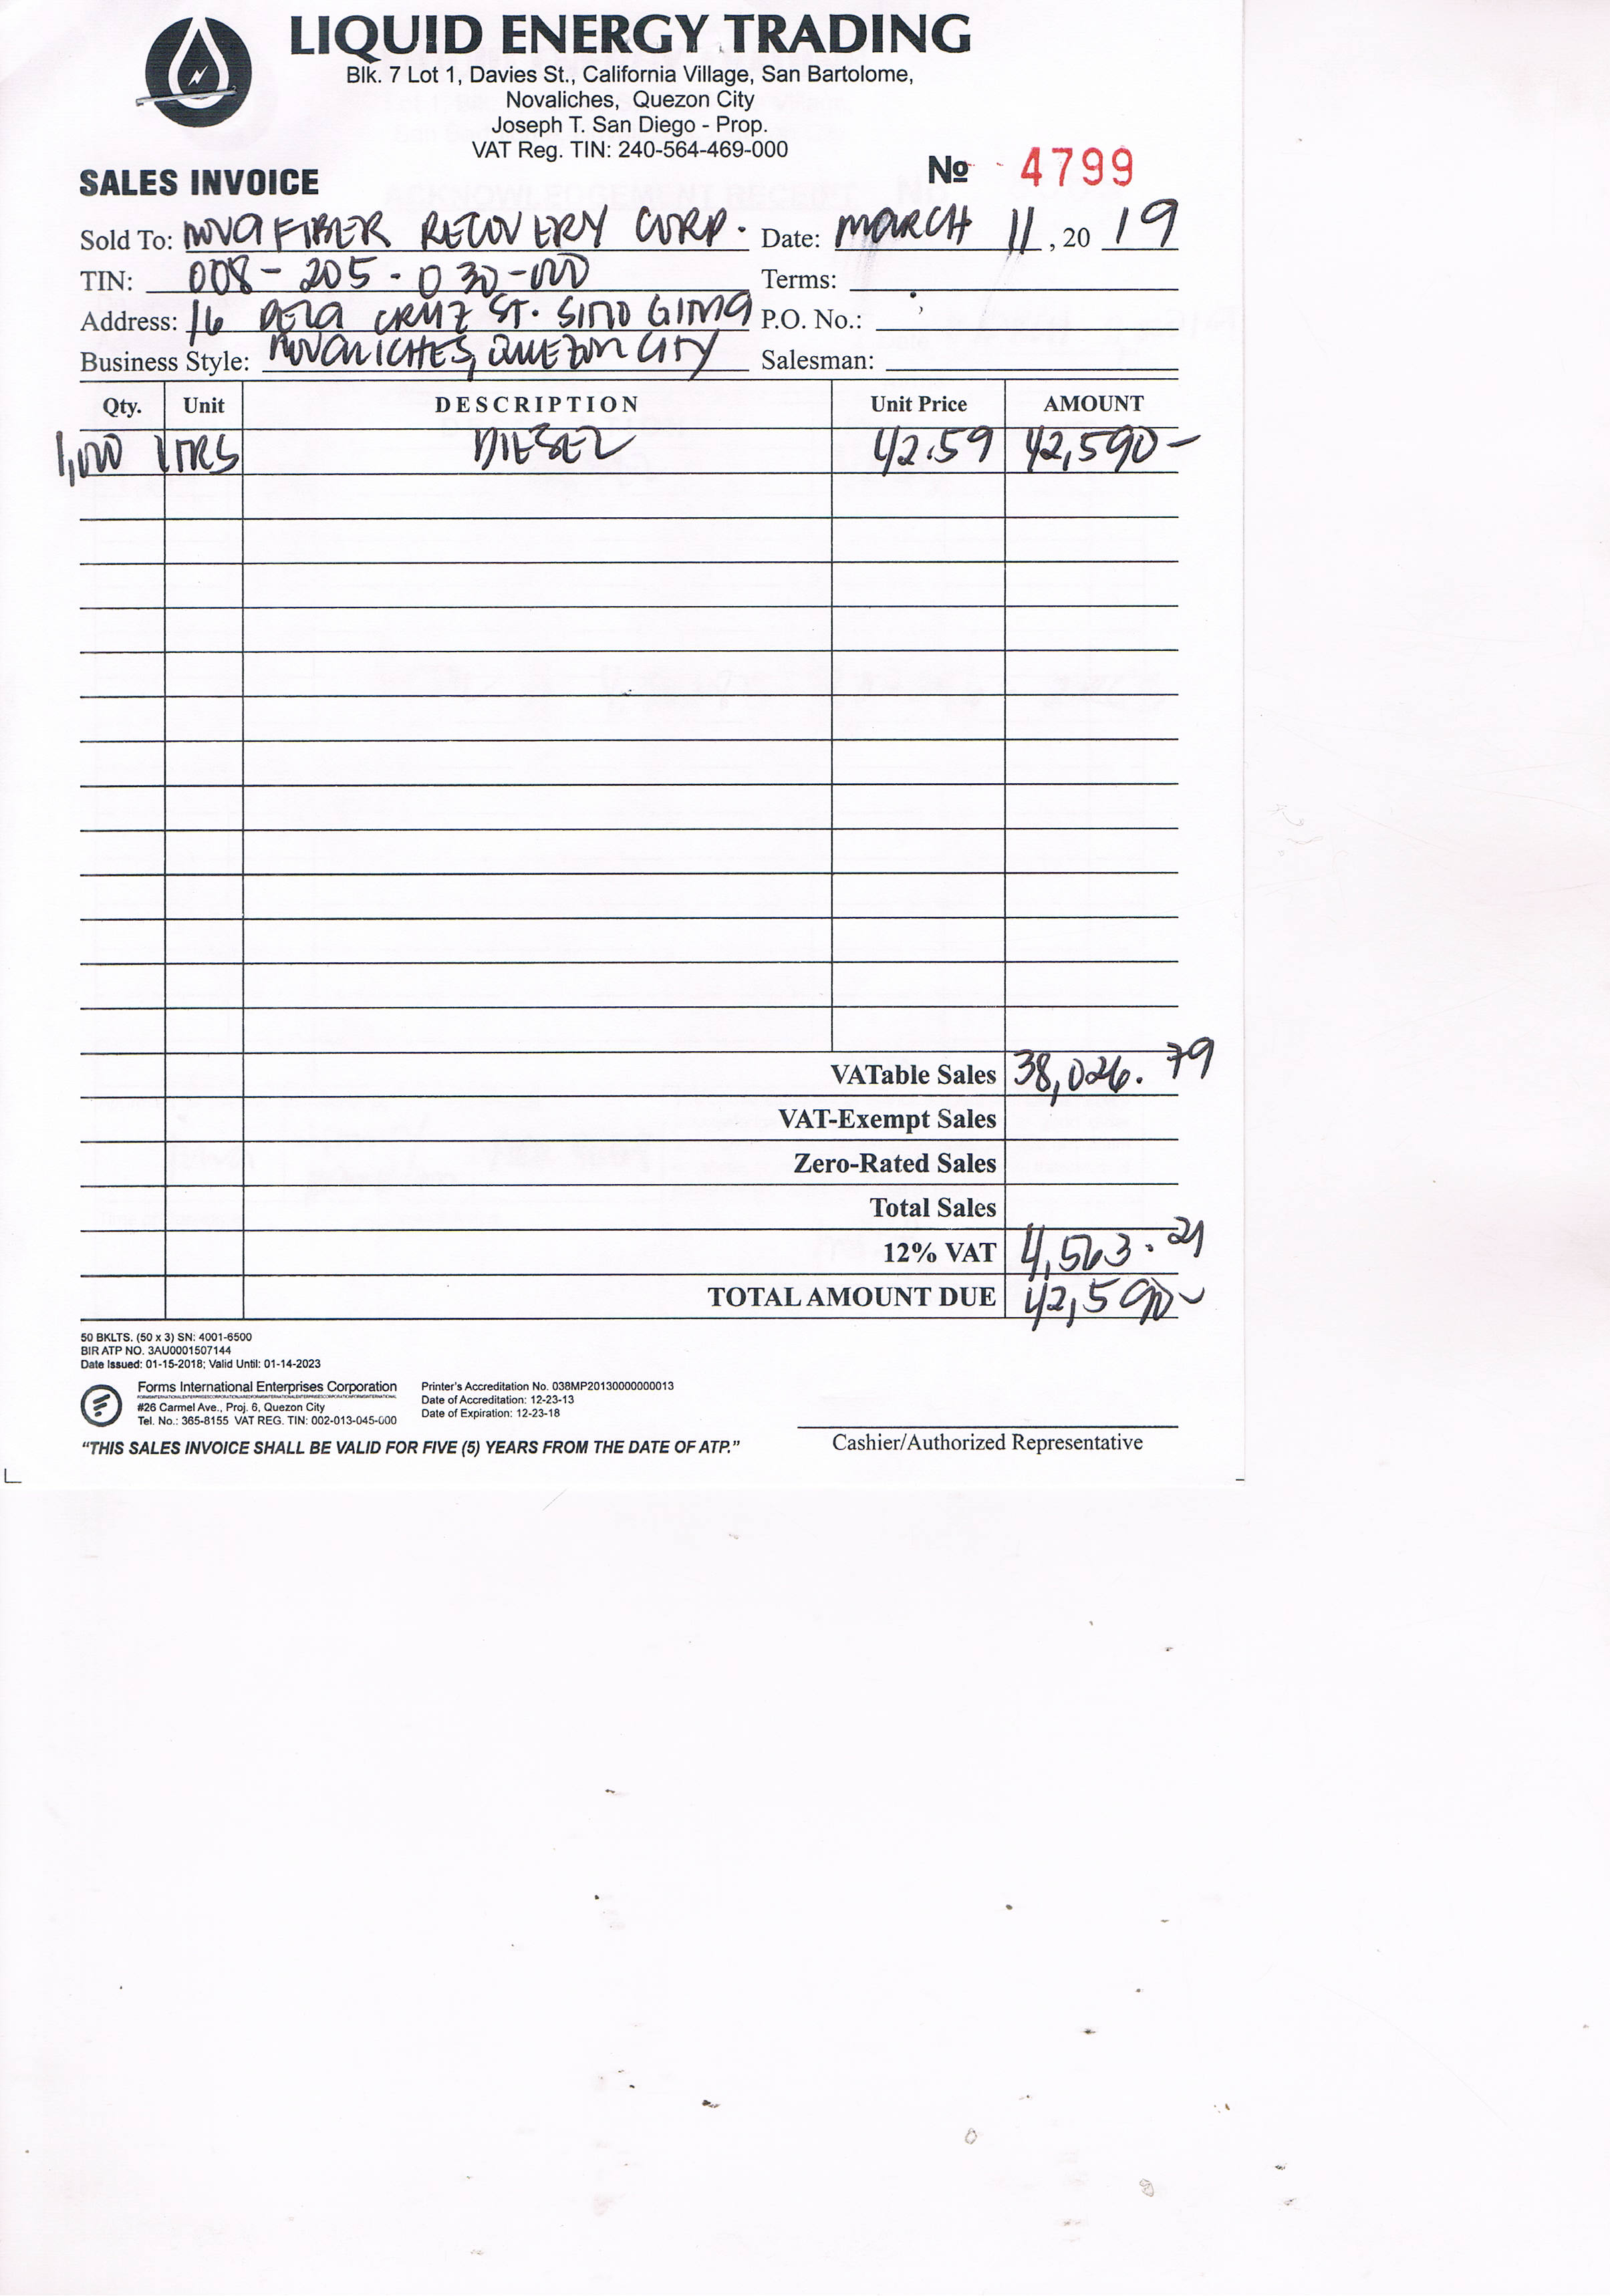 LIQUID ENERGY TRADING
Blk. 7 Lot 1, Davies St., California Village, San Bartolome,
Novaliches, Quezon City
Joseph T. San Diego - Prop.
VAT Reg. TIN: 240-564-469-000
SALES INVOICE
No 4799
Sold To: NOVA FIBER RECOVERY CORP. Date: MARCH 11, 20 19
TIN: 008-205-030-000 Terms:
Address: 16 DELA CRUZ ST. SITIO GITNA P.O. No.:
Business Style: NOVALICHES, QUEZON CITY Salesman:
Qty. Unit DESCRIPTION Unit Price AMOUNT
1,000 LTRS DIESEL 42.59 42,590-
VATable Sales 38,026.79
VAT-Exempt Sales
Zero-Rated Sales
Total Sales
12% VAT 4,563.21
TOTAL AMOUNT DUE 42,590-
50 BKLTS. (50 x 3) SN: 4001-6500
BIR ATP NO. 3AU0001507144
Date Issued: 01-15-2018; Valid Until: 01-14-2023
Forms International Enterprises Corporation
#26 Carmel Ave., Proj. 6, Quezon City
Tel. No.: 365-8155 VAT REG. TIN: 002-013-045-000
Printer's Accreditation No. 038MP20130000000013
Date of Accreditation: 12-23-13
Date of Expiration: 12-23-18
"THIS SALES INVOICE SHALL BE VALID FOR FIVE (5) YEARS FROM THE DATE OF ATP."
Cashier/Authorized Representative